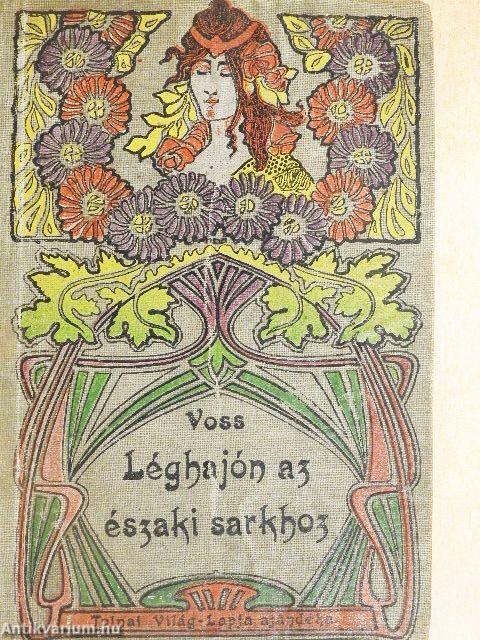 Voss
Léghajón az
északi sarkhoz
Tolnai Világ-Lapja ajándéka
Antikvarium.hu